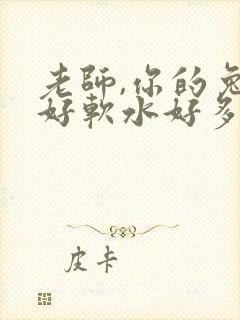 老師,你的兔
好軟水好多
皮卡